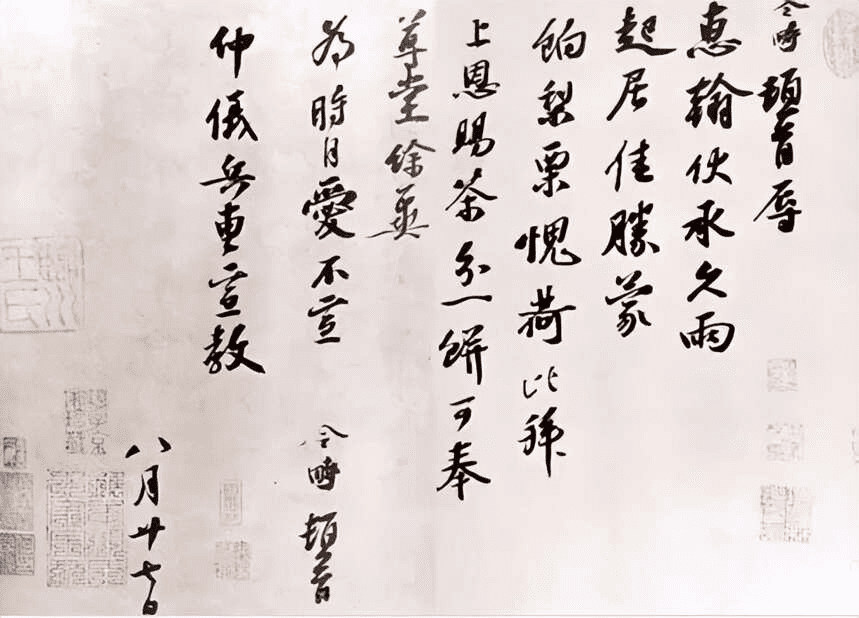 令時頓首辱
惠翰伏承久雨
起居佳勝蒙
餉梨栗愧荷比拜
上恩賜茶分一餅可奉
尊堂餘萬
為時自愛不宣
令時頓首
仲儀兵曹宣教
八月廿七日